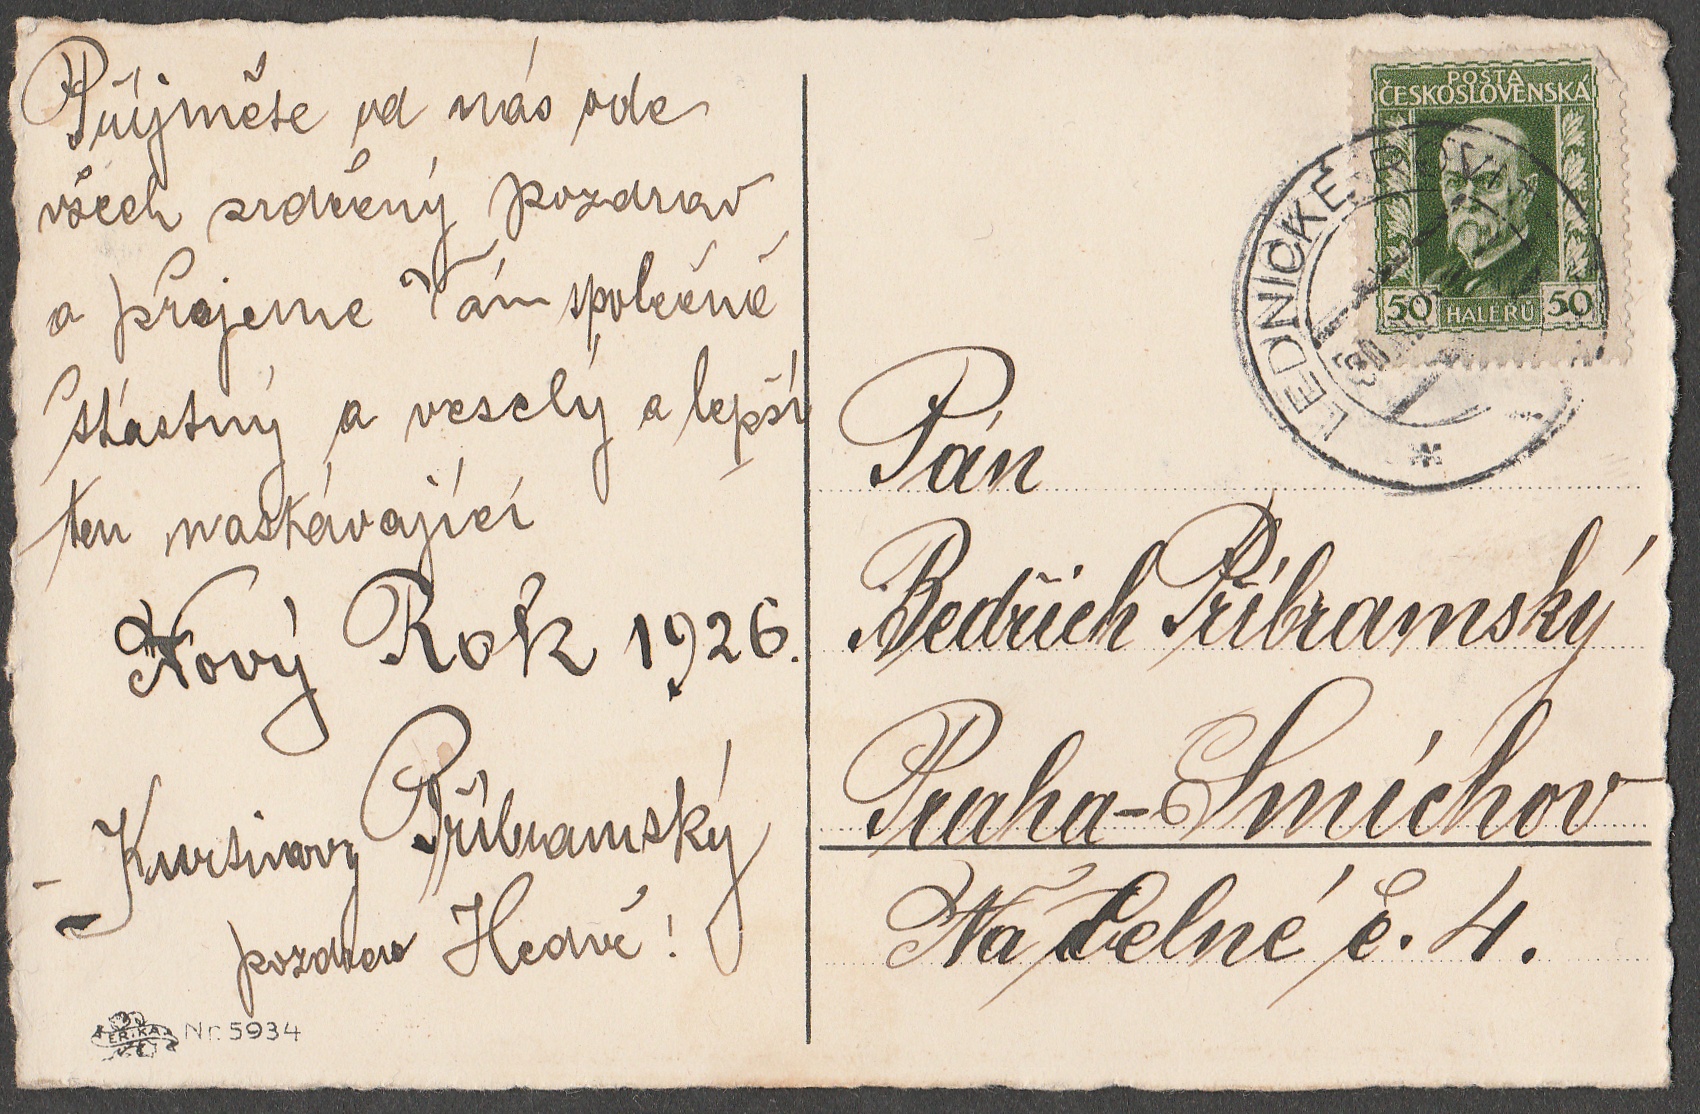 Přijměte od nás ode
všech srdečný pozdrav
a přejeme Vám společně
šťastný a veselý a lepší
ten nastávající
Nový Rok 1926.
Příbramský
pozdrav Hedvě!
ERIKA Nr. 5934
POŠTA
ČESKOSLOVENSKÁ
50 HALÉŘŮ 50
LEDNICKÉ ROVNE
Pán
Bedřich Příbramský
Praha-Smíchov
Na Celné č. 4.